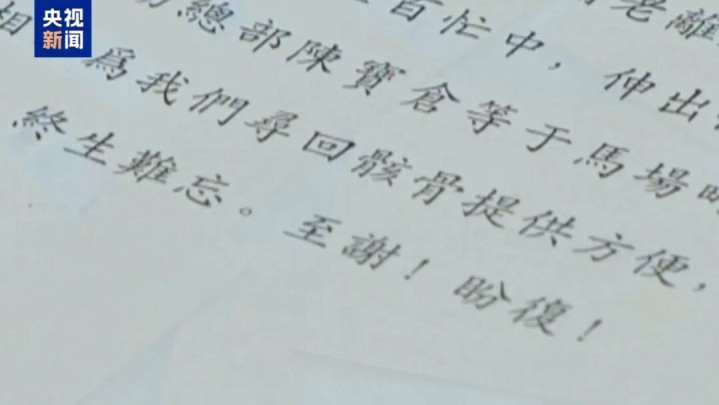 央视
新闻
百忙中，伸出
總部陳寶倉等于馬場
為我們尋回骸骨提供方便，
終生難忘。至謝！盼復！